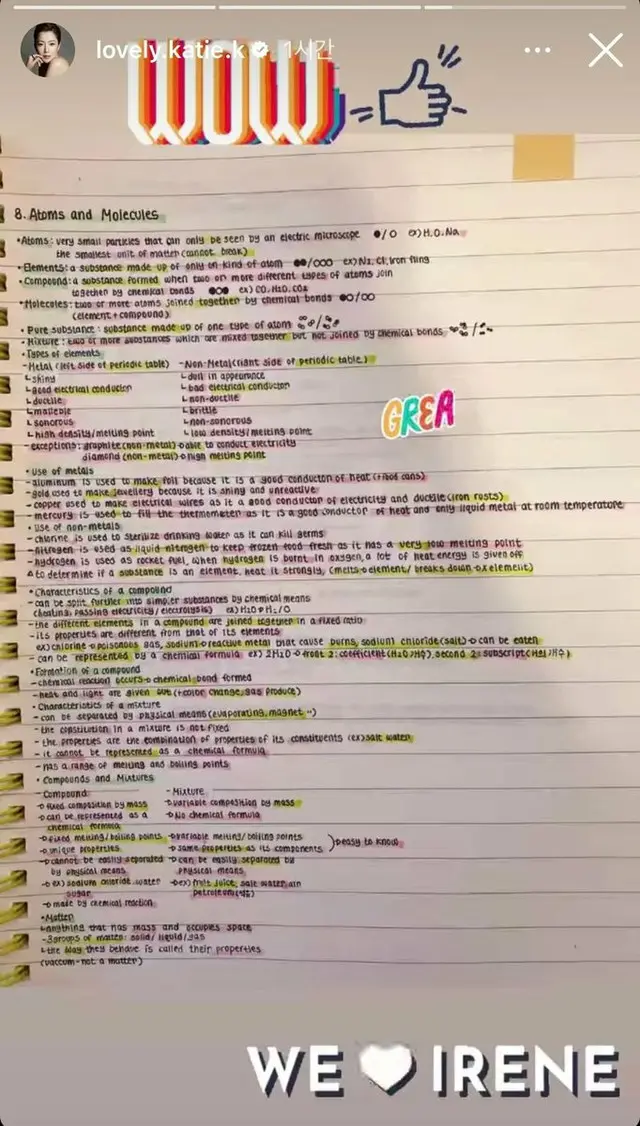 lovely.katie.k 1시간
WOW
8. Atoms and Molecules
•Atoms: very small particles that can only be seen by an electric microscope ●/○ ex)H,O,Na
the smallest unit of matter(cannot break)
•Elements: a substance made up of only on kind of atom ●●/○○○ ex)N2, Cl, iron filing
•Compound: a substance formed when two or more different types of atoms join
together by chemical bonds ●○● ex) CO, H2O, CO2
•Molecules: two or more atoms joined together by chemical bonds ●○/○○
(element+compound)
•Pure substance: substance made up of one type of atom
•Mixture: two or more substances which are mixed together but not joined by chemical bonds
•Types of elements
-Metal (left side of periodic table) -Non-Metal(right side of periodic table)
↳shiny ↳dull in appearance
↳good electrical conductor ↳bad electrical conductor
↳ductile ↳non-ductile
↳malleble ↳brittle
↳sonorous ↳non-sonorous
↳high density/melting point ↳low density/melting point
GREA
-exceptions: graphite(non-metal)→able to conduct electricity
diamond(non-metal)→high melting point
•Use of metals
-aluminum is used to make foil because it is a good conductor of heat (+food cans)
-gold used to make jewellery because it is shiny and unreactive
-copper used to make electrical wires as it a good conductor of electricity and ductile(iron rusts)
-mercury is used to fill the thermometer as it is a good conductor of heat and only liquid metal at room temperature
•Use of non-metals
-chlorine is used to sterilize drinking water as it can kill germs
-nitrogen is used as liquid nitrogen to keep frozen food fresh as it has a very low melting point
-hydrogen is used as rocket fuel, when hydrogen is burnt in oxygen, a lot of heat energy is given off
△to determine if a substance is an element, heat it strongly, (melts→element/ breaks down→x element)
•Characteristics of a compound
-can be split further into simpler substances by chemical means
(heating, passing electricity/electrolysis) ex)H2O→H2/O
-the different elements in a compound are joined together in a fixed ratio
-its properties are different from that of its elements
ex)chlorine→poisonous gas, sodium→reactive metal that cause burns, sodium chloride(salt)→can be eaten
-can be represented by a chemical formula ex) 2H2O→front 2: coefficient(H2O개수), second 2: subscript(H의개수)
•Formation of a compound
-chemical reaction occurs→chemical bond formed
-heat and light are given out (+color change, gas produce)
•Characteristics of a mixture
-can be separated by physical means(evaporating, magnet")
-the constitution in a mixture is not fixed
-the properties are the combination of properties of its constituents (ex)salt water)
-it cannot be represented as a chemical formula
-has a range of melting and boiling points
•Compounds and Mixtures
-Compound -Mixture
→fixed composition by mass →variable composition by mass
→can be represented as a →No chemical formula
chemical formula
→fixed melting/boiling points →variable melting/boiling points
→unique properties →same properties as its components )→easy to know
→cannot be easily separated →can be easily separated by
by physical means physical means
→ex) sodium chloride, water →ex) fruit juice, salt water, air
sugar petroleum
→made by chemical reaction
•Matter
↳anything that has mass and occupies space
-3groups of matter: solid/liquid/gas
↳the way they behave is called their properties
(vaccum-not a matter)
WE IRENE